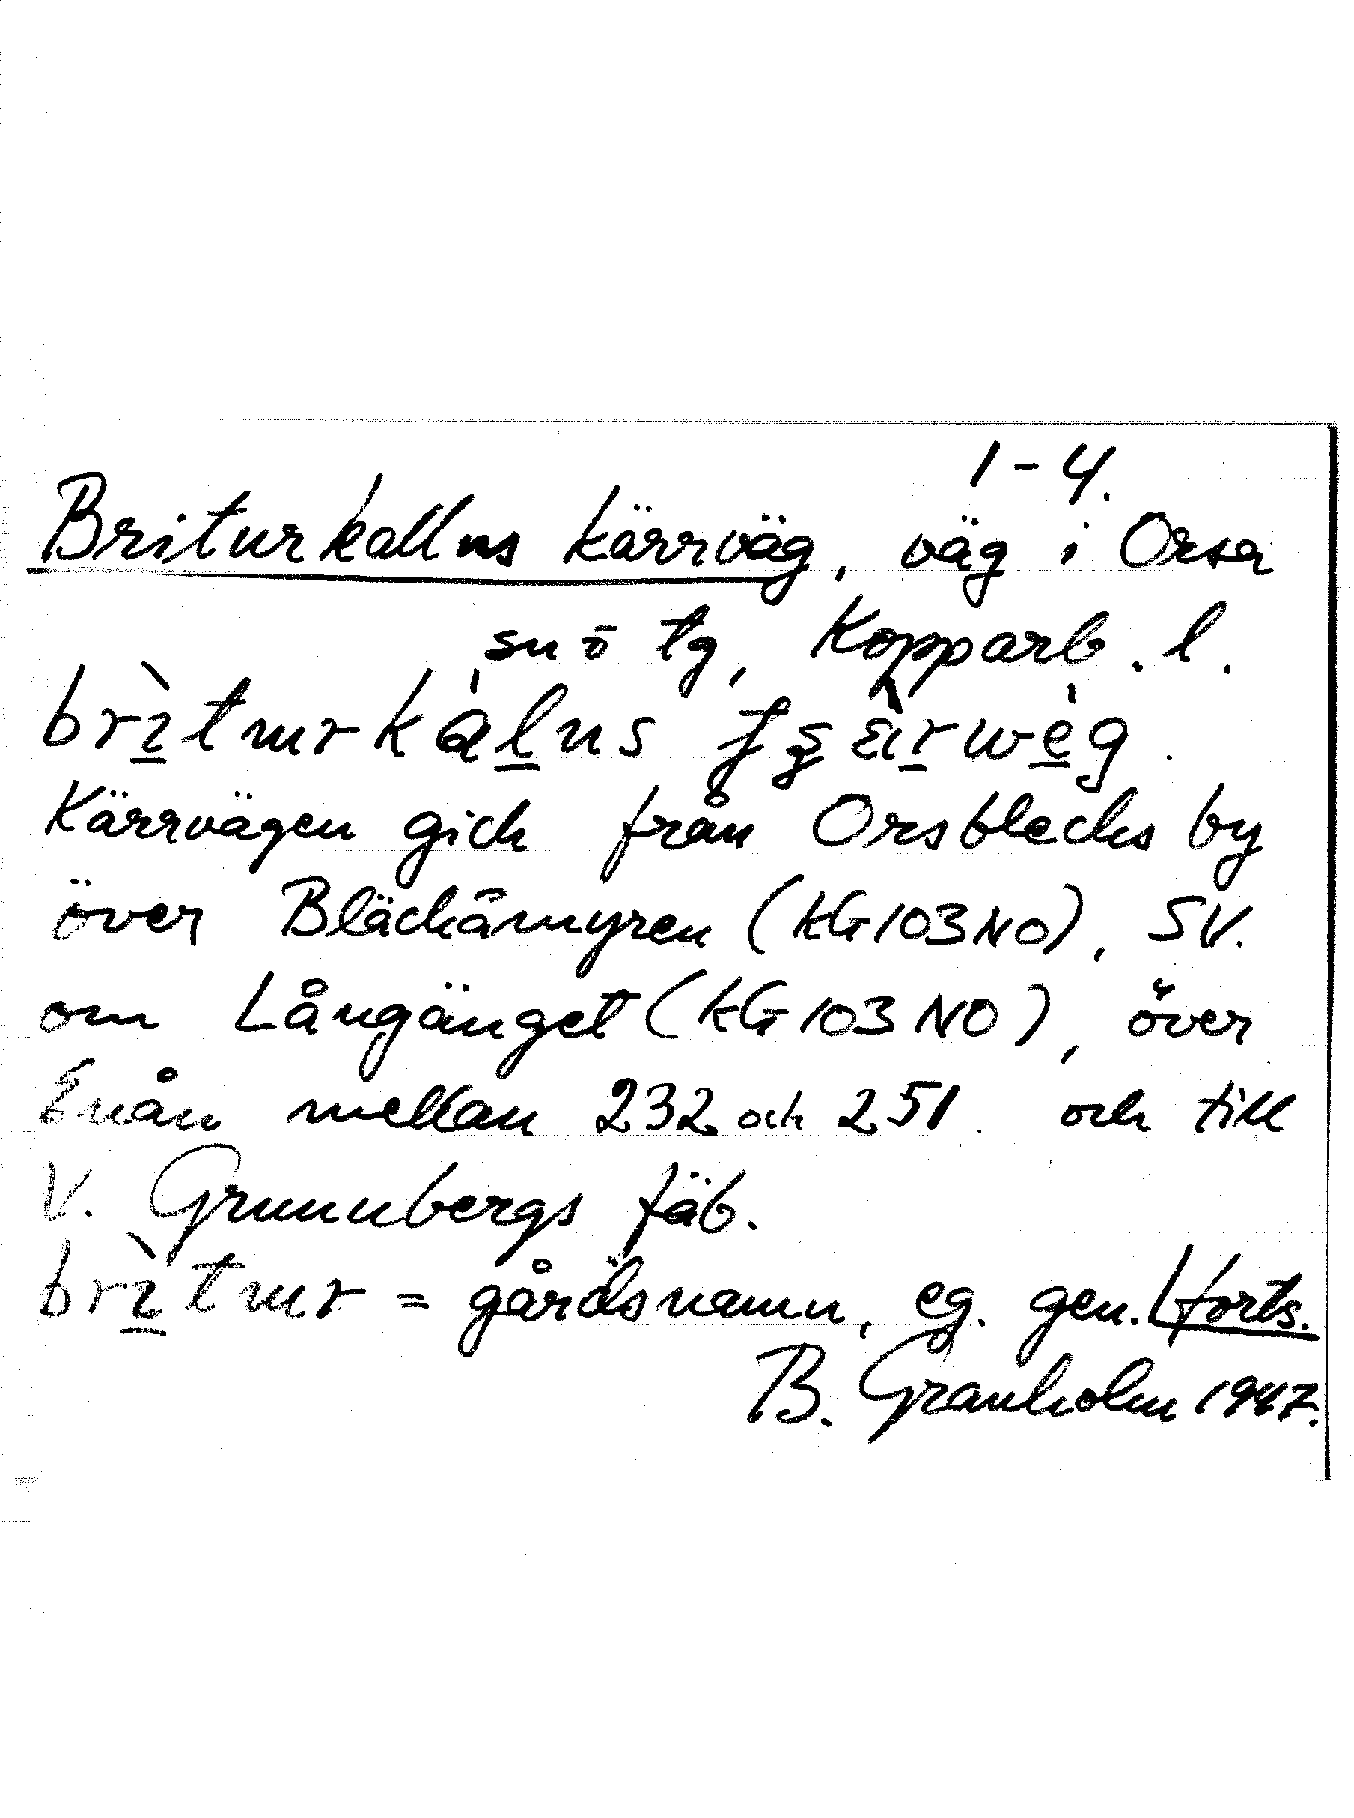 1-4.
Briturkallns kärrväg, väg i Orsa
sn ö tg, Kopparb. l.
brìturkàlns
Kärrvägen gick från Orsblecks by
över Bläckåmyren (KG103NO), SV.
om Långänget (KG103NO), över
Enån mellan 232 och 251 och till
V. Grunnbergs fäb.
brìtur = gårdsnamn, eg. gen. forts.
B. Granholm 1947.